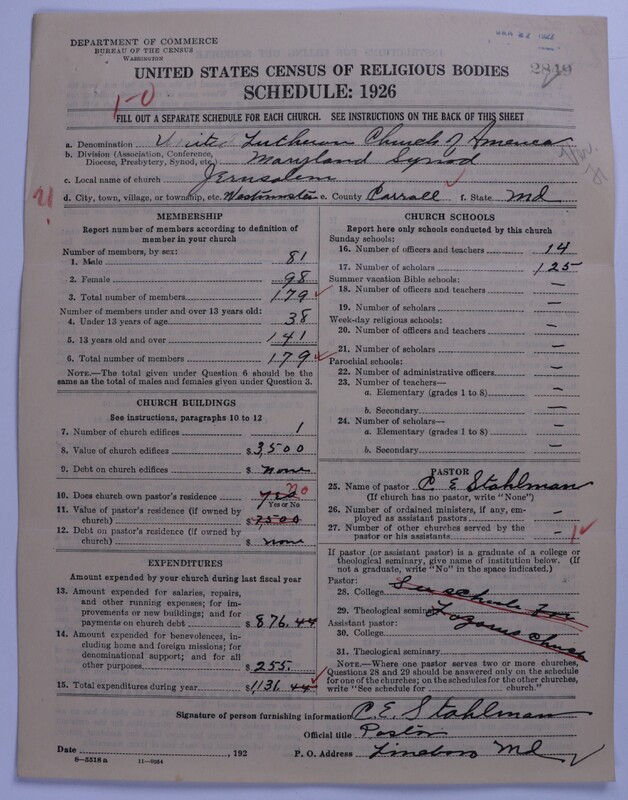 DEPARTMENT OF COMMERCE
BUREAU OF THE CENSUS
WASHINGTON
2849
UNITED STATES CENSUS OF RELIGIOUS BODIES
SCHEDULE: 1926
1-0
FILL OUT A SEPARATE SCHEDULE FOR EACH CHURCH. SEE INSTRUCTIONS ON THE BACK OF THIS SHEET
a. Denomination United Lutheran Church of America
b. Division (Association, Conference, Diocese, Presbytery, Synod, etc.) Maryland Synod
c. Local name of church Jerusalem
d. City, town, village, or township, etc. Westminster e. County Carroll f. State Md
MEMBERSHIP
Report number of members according to definition of member in your church
Number of members, by sex:
1. Male 81
2. Female 98
3. Total number of members 179
Number of members under and over 13 years old:
4. Under 13 years of age 38
5. 13 years old and over 141
6. Total number of members 179
NOTE.—The total given under Question 6 should be the same as the total of males and females given under Question 3.
CHURCH BUILDINGS
See instructions, paragraphs 10 to 12
7. Number of church edifices 1
8. Value of church edifices $ 3,500
9. Debt on church edifices $ none
10. Does church own pastor's residence yes no
Yes or No
11. Value of pastor's residence (if owned by church) $ 7500
12. Debt on pastor's residence (if owned by church) $ none
EXPENDITURES
Amount expended by your church during last fiscal year
13. Amount expended for salaries, repairs, and other running expenses; for improvements or new buildings; and for payments on church debt $ 876.44
14. Amount expended for benevolences, including home and foreign missions; for denominational support; and for all other purposes $ 255.
15. Total expenditures during year $ 1,131.44
CHURCH SCHOOLS
Report here only schools conducted by this church
Sunday schools:
16. Number of officers and teachers 14
17. Number of scholars 125
Summer vacation Bible schools:
18. Number of officers and teachers —
19. Number of scholars —
Week-day religious schools:
20. Number of officers and teachers —
21. Number of scholars —
Parochial schools:
22. Number of administrative officers —
23. Number of teachers—
a. Elementary (grades 1 to 8) —
b. Secondary —
24. Number of scholars—
a. Elementary (grades 1 to 8) —
b. Secondary —
PASTOR
25. Name of pastor C E Stahlman
(If church has no pastor, write "None")
26. Number of ordained ministers, if any, employed as assistant pastors —
27. Number of other churches served by the pastor or his assistants — 1
If pastor (or assistant pastor) is a graduate of a college or theological seminary, give name of institution below. (If not a graduate, write "No" in the space indicated.)
Pastor:
28. College See schedule for
29. Theological seminary Lazarus Church
Assistant pastor:
30. College
31. Theological seminary
NOTE.—Where one pastor serves two or more churches, Questions 28 and 29 should be answered only on the schedule for one of the churches; on the schedules for the other churches, write "See schedule for church."
Signature of person furnishing information C. E. Stahlman
Official title Pastor
Date , 192 P. O. Address Lineboro Md
8—5518 a 11—9054